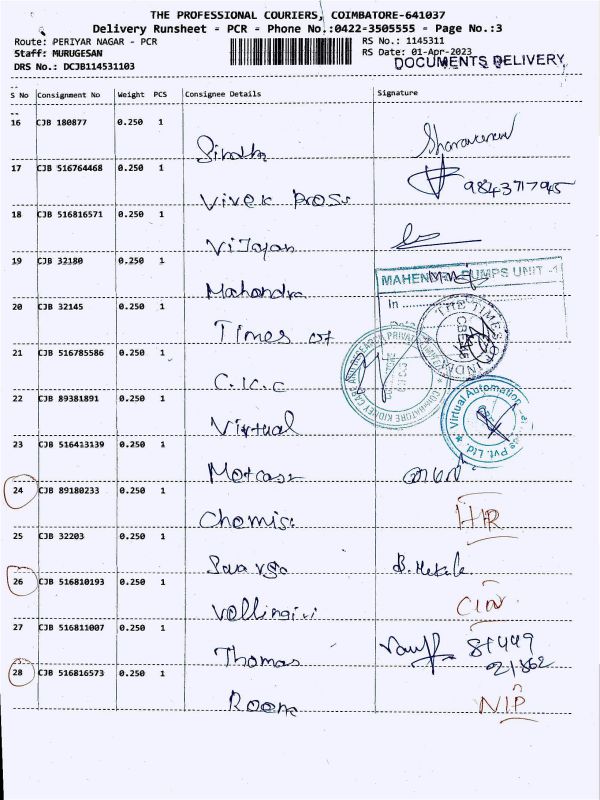 THE PROFESSIONAL COURIERS, COIMBATORE-641037
Delivery Runsheet - PCR - Phone No.:0422-3505555 - Page No.:3
Route: PERIYAR NAGAR - PCR
RS No.: 1145311
Staff: MURUGESAN
RS Date: 01-Apr-2023
DRS No.: DCJB114531103
DOCUMENTS DELIVERY
S No Consignment No Weight PCS Consignee Details Signature
16 CJB 180877 0.250 1
Sindhu
17 CJB 516764468 0.250 1
9843717945
Vivek Press
18 CJB 516816571 0.250 1
Vijayan
19 CJB 32180 0.250 1
MAHENDRA PUMPS UNIT -1
Mahendra
In
20 CJB 32145 0.250 1
THE TIMES OF INDIA
Times of
21 CJB 516785586 0.250 1
COIMBATORE KIDNEY CARE AND RESEARCH PRIVATE LIMITED
C.K.C
22 CJB 89381891 0.250 1
Virtual Automation Pvt. Ltd.
Virtual
23 CJB 516413139 0.250 1
24 CJB 89180233 0.250 1
HR
25 CJB 32203 0.250 1
B. Mekala
26 CJB 516810193 0.250 1
Vellingiri
27 CJB 516811007 0.250 1
Thomas
28 CJB 516816573 0.250 1
NIP